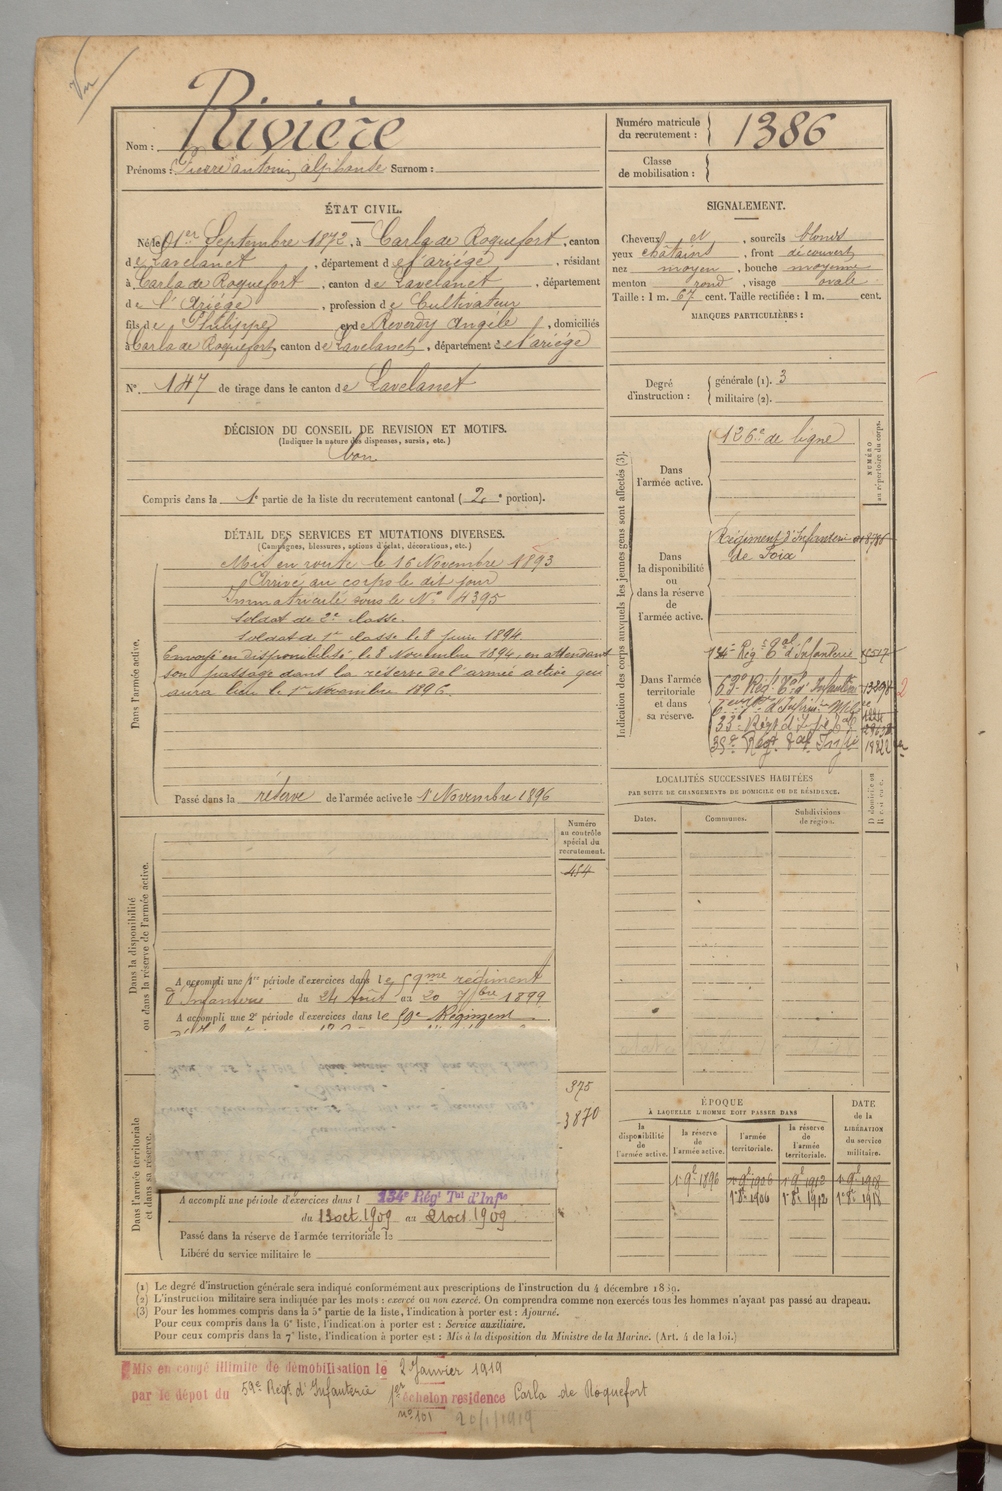 Vu
Rivière
Nom :
Prénoms : Pierre antonin alphonse Surnom :
Numéro matricule
du recrutement :
1386
Classe
de mobilisation :
ÉTAT CIVIL.
Né le 1er Septembre 1872, à Carla de Roquefort, canton
de Lavelanet, département de l'ariège, résidant
à Carla de Roquefort, canton de Lavelanet, département
de l'Ariège, profession de Cultivateur
fils de Philippe et de Reverdy Angèle, domiciliés
à Carla de Roquefort, canton de Lavelanet, département de l'ariège
N°. 147 de tirage dans le canton de Lavelanet
SIGNALEMENT.
Cheveux et, sourcils blonds
yeux châtains, front découvert
nez moyen, bouche moyenne
menton rond, visage ovale
Taille : 1 m. 67 cent. Taille rectifiée : 1 m. cent.
MARQUES PARTICULIÈRES :
Degré
d'instruction :
générale (1). 3
militaire (2).
DÉCISION DU CONSEIL DE REVISION ET MOTIFS.
(Indiquer la nature des dispenses, sursis, etc.)
bon
Compris dans la 1e partie de la liste du recrutement cantonal (2e portion).
DÉTAIL DES SERVICES ET MUTATIONS DIVERSES.
(Campagnes, blessures, actions d'éclat, décorations, etc.)
Dans l'armée active.
Mis en route le 16 Novembre 1893
Arrivé au corps le dit jour
Immatriculé sous le N° 4395
Soldat de 2e classe.
Soldat de 1re classe le 8 juin 1894.
Envoyé en disponibilité le 8 Novembre 1894, en attendant
son passage dans la réserve de l'armée active qui
aura lieu le 1er Novembre 1896.
Passé dans la réserve de l'armée active le 1 Novembre 1896
Indication des corps auxquels les jeunes gens sont affectés (3).
NUMÉRO
au répertoire du corps.
Dans
l'armée active.
126e de ligne
Dans
la disponibilité
ou
dans la réserve
de
l'armée active.
Régiment d'Infanterie
de Foix
Dans l'armée
territoriale
et dans
sa réserve.
134e Rég. Tal d'Infanterie
63e Régt Tal d'Infanterie
2
33e Régt d'Infie Tal
35e Régt Tal Infie
19822
LOCALITÉS SUCCESSIVES HABITÉES
PAR SUITE DE CHANGEMENTS DE DOMICILE OU DE RÉSIDENCE.
Dates.
Communes.
Subdivisions
de région.
D domicile ou
R résidence.
Dans la disponibilité
ou dans la réserve de l'armée active.
Numéro
au contrôle
spécial du
recrutement.
484
A accompli une 1re période d'exercices dans le 59me régiment
d'Infanterie du 24 Août au 20 7bre 1899
A accompli une 2e période d'exercices dans le 59e Régiment
375
3870
Dans l'armée territoriale
et dans sa réserve.
A accompli une période d'exercices dans l 134e Régt Tal d'Infie
du 13 oct. 1909 au 21 oct 1909
Passé dans la réserve de l'armée territoriale le
Libéré du service militaire le
ÉPOQUE
À LAQUELLE L'HOMME DOIT PASSER DANS
DATE
de la
LIBÉRATION
du service
militaire.
la
disponibilité
de
l'armée active.
la réserve
de
l'armée active.
l'armée
territoriale.
la réserve
de
l'armée
territoriale.
1er 9b 1896 1er 9b 1906 1er 9b 1912 1er 9b 1918
1er 8b 1906 1er 8b 1912 1er 8b 1918
(1) Le degré d'instruction générale sera indiqué conformément aux prescriptions de l'instruction du 4 décembre 1889.
(2) L'instruction militaire sera indiquée par les mots : exercé ou non exercé. On comprendra comme non exercés tous les hommes n'ayant pas passé au drapeau.
(3) Pour les hommes compris dans la 5e partie de la liste, l'indication à porter est : Ajourné.
Pour ceux compris dans la 6e liste, l'indication à porter est : Service auxiliaire.
Pour ceux compris dans la 7e liste, l'indication à porter est : Mis à la disposition du Ministre de la Marine. (Art. 4 de la loi.)
Mis en congé illimité de démobilisation le 2 Janvier 1919
par le dépôt du 59e Régt d'Infanterie 1er échelon residence Carla de Roquefort
n° 101 20/1/1919